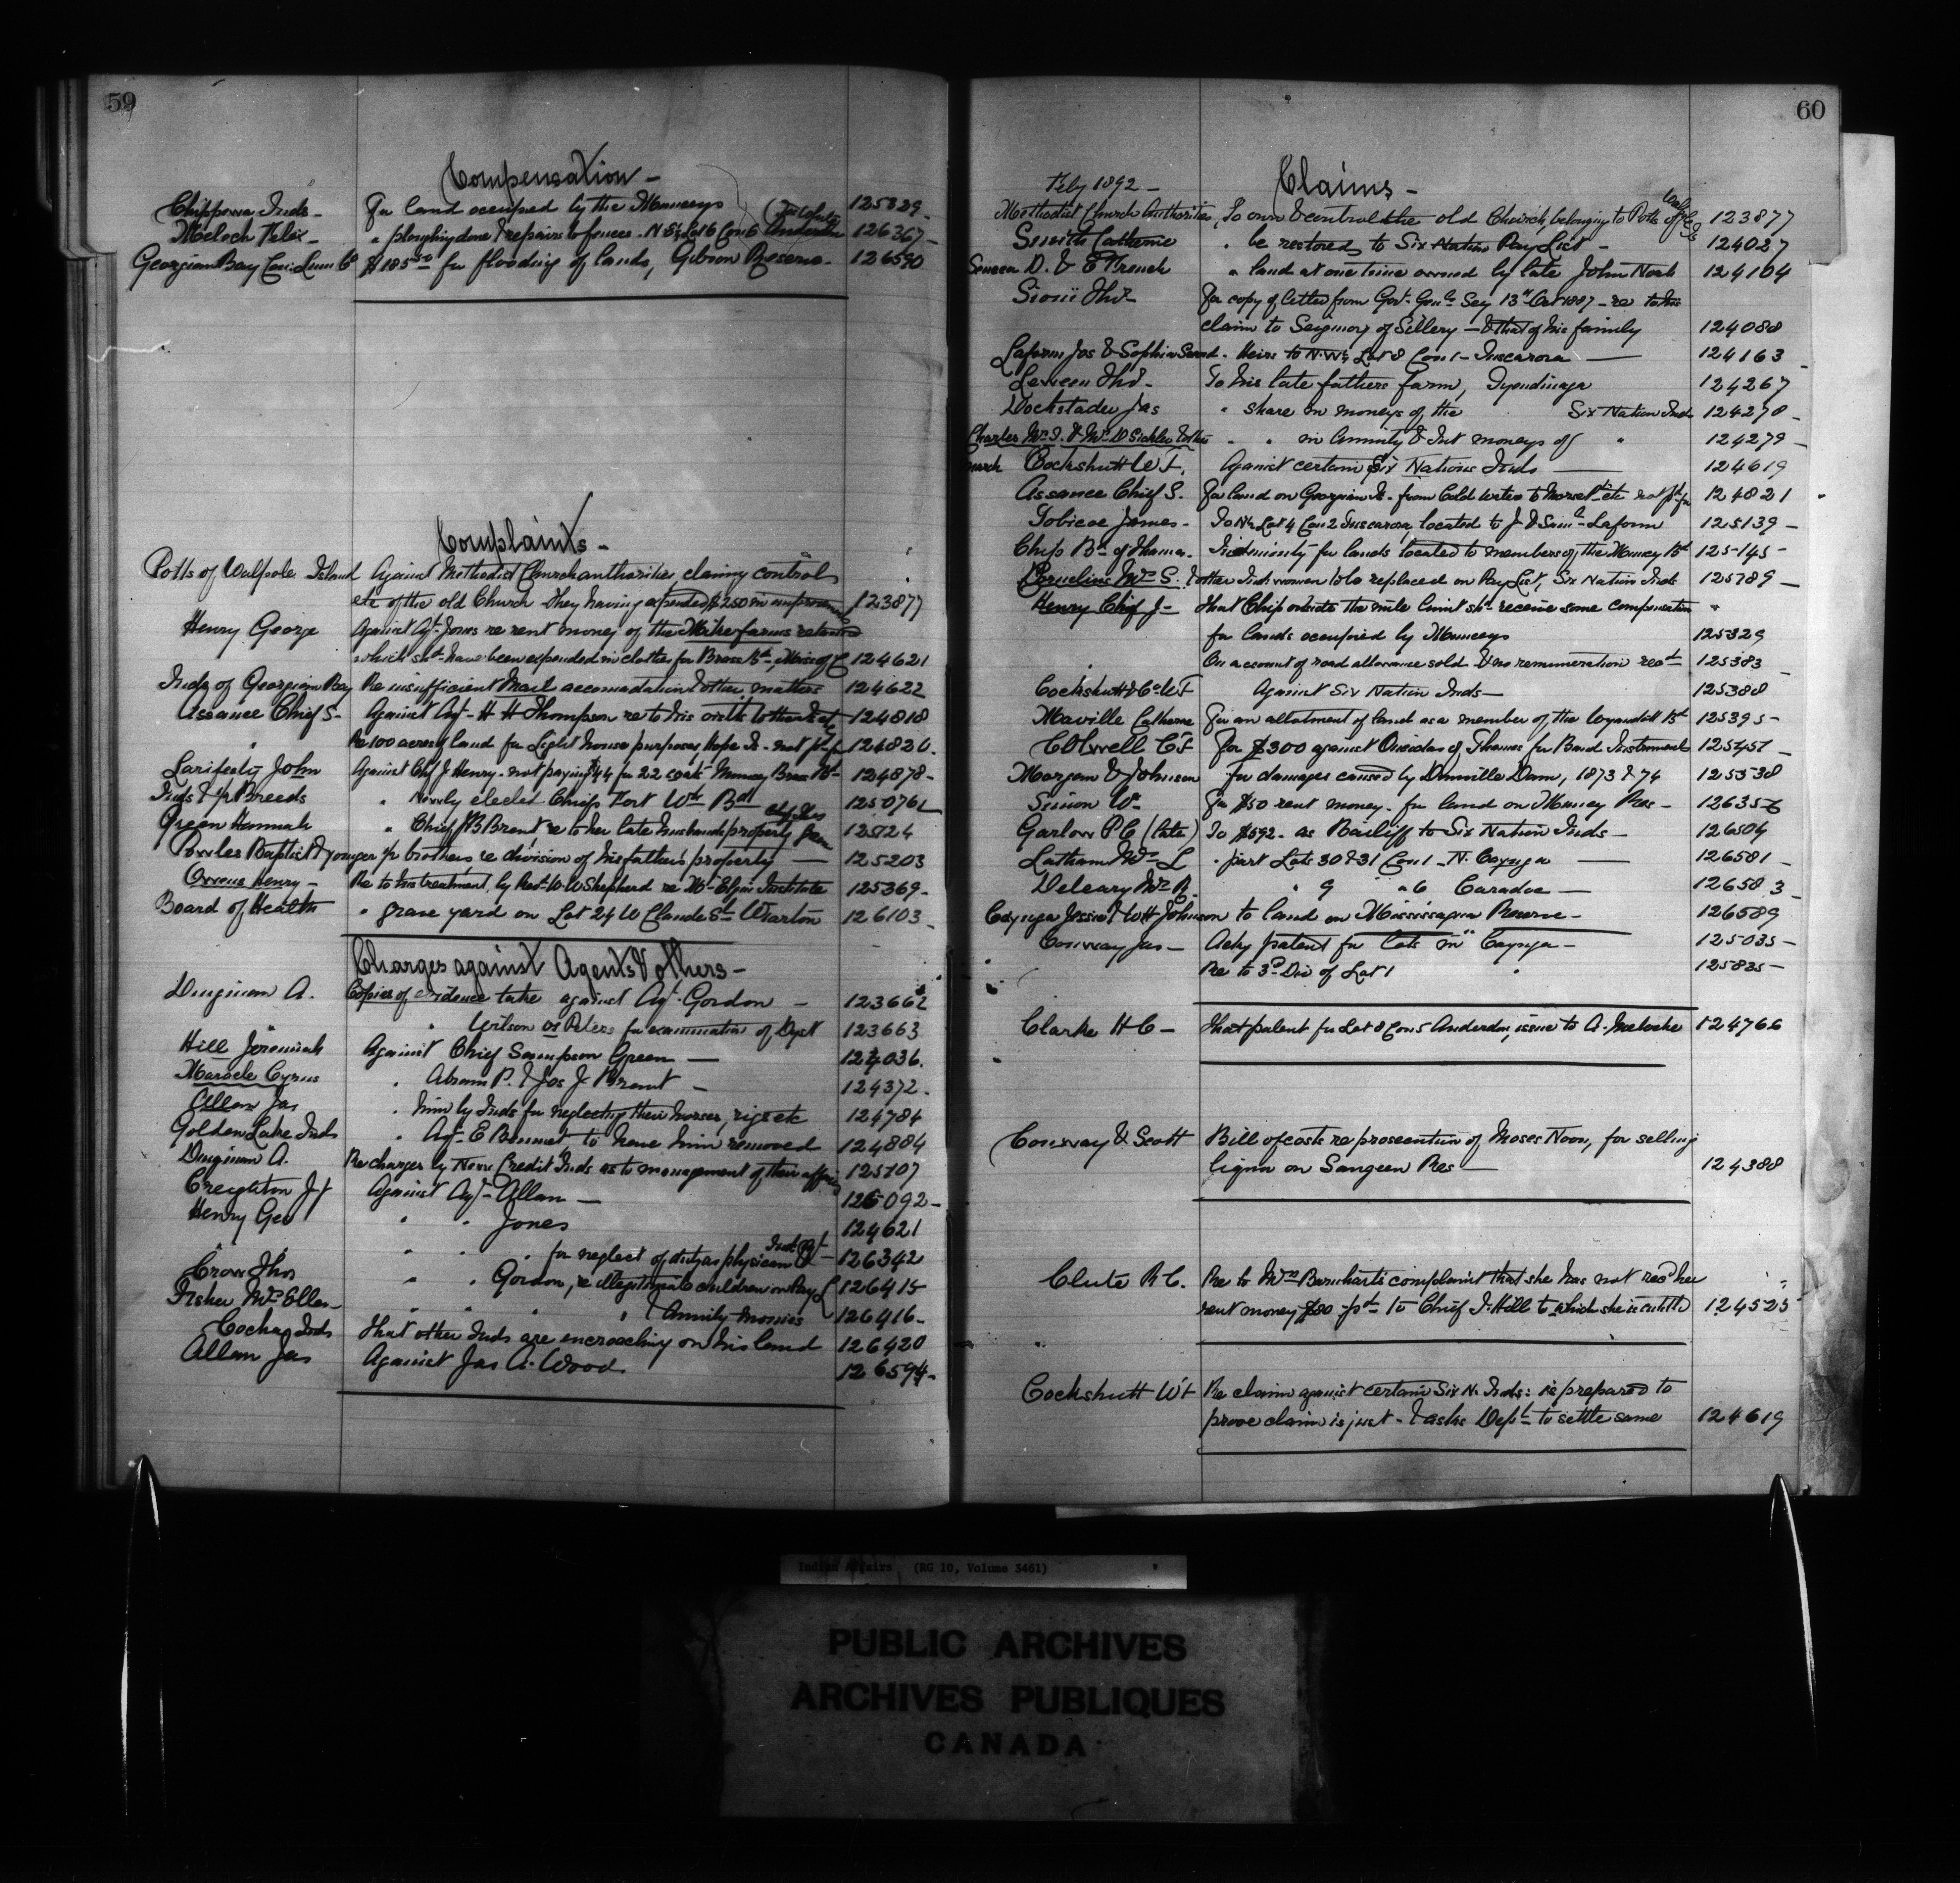 59
Compensation -
Chippewa Inds - For land occupied by the Munceys 125329 -
Meloch Felix - " ploughing done & repairs to fences - N E¼ Lot 6 Con 6 Anderdon 126367 -
Georgian Bay Con. Lum Co $185.50 for flooding of lands, Gibson Reserve - 126590
Complaints -
Potts of Walpole Island Against Methodist Church authorities claiming control
etc of the old Church they having expended $250 in 123877
Henry George Against Agt. Jones re rent money of the farms
which shd have been expended in clothes for Brass Bd 124621
Inds of Georgian Bay Re insufficient Mail accomadation & other matters 124622
Assance Chief S - Against Agt - H H Thompson re to his 124818
" Re 100 acres of land for Light house purposes, Hope Is - not pd for 124820 -
John Against Chf J. Henry - not paying $44 for 22 coats - Muncey Brass Bd - 124878 -
Inds & ½ Breeds " Newly elected Chiefs Fort Wm Bd 125076½
Green Hannah " Chief J B Brant re to her late husbands property 125124
Powles Baptist & younger ½ brothers re division of his father's property — 125203
Owens Henry - Re to his treatment, by Revd W. W Shepherd re Mt - Elgin Institute 125369 -
Board of Health " grave yard on Lot 24 W Claude St Wiarton 126103 -
Charges against Agents & others -
Dingman A. Copies of evidence take against Agt. Gordon - 123662
" Wilson & Peters for examination of Dyst 123663
Hill Jeremiah Against Chief Sampson Green — 124036.
Maracle Cyrus " Abram P. & Jos J Brant - 124372 -
Allan Jas " him by Inds for neglecting their horses, rigs etc 124784
Golden Lake Inds " Agt - E Bennet to have him removed 124884
Dingman A. Re charges by New Credit Inds as to management of their affairs 125107
Creighton J. Against Agt - Allan — 125092 -
Henry Geo " " Jones 124621
" " " " for neglect of duty as physician 126342
Crow Thos " " Gordon, re illegitimate children on Pay L 126415
Fisher Mrs Ellen - " " " " Annuity Monies 126416 -
Inds That other Inds are encroaching on his land 126420
Allan Jas Against Jas A. Wood 126594 -
60
Feby 1892 - Claims -
Methodist Church Authorities, To own & control the old Church, belonging to Potts of 123877
Smith Catherine " be restored to Six Nation Pay List - 124027
Seneca D. & E French " land at one time owned by late John Nash 124104
Sioui Thos - For copy of letter from Govr - Genls Secy 13th Oct 1887 - re to his
claim to Seigniory of Sillery - & that of his family 124088
Laform Jos & Sophia Sand - Heirs to N. W¼ Lot 8 Con 1 - Tuscarora — 124163
Thos - To his late fathers farm, Tyendinaga 124267
Dockstader Jas " share in moneys of the Six Nation Inds 124278 -
Charles Mrs S. & Mrs D Sickles " " in Annuity & Int moneys of " 124279 -
Cockshutt W F. Against certain Six Nations Inds — 124619
Assance Chief S. For land on Georgian B. - from Cold Water to etc not pd for 124821
Tobicoe James - To N½ Lot 4 Con 2 Tuscarora located to J & Saml - Laform 125139 -
Chip Bd of Thames - Indemnity for lands located to members of the Muncey Bd 125145 -
Cornelius Mrs S. & other Ind: women to be replaced on Pay List, Six Nation Inds 125789 -
Henry Chief J - That Chips outside the mile limit shd receive some compensation "
for lands occupied by Munceys 125329
" On account of road allowance sold & no remuneration recd 125383 -
Cockshutt & Co W F Against Six Nation Inds — 125388
Maville Catherine For an allotment of land as a member of the Wyandott Bd 125395 -
Colwell C F For $300 against Oneidas of Thames for Band Instruments 125457 -
Morgan & Johnson For damages caused by Dunnville Dam, 1873 & 74 125538
Simon Wm For $50 rent money - for land on Muncey Res - 126356
Garlow P C (late) To $592 - as Bailiff to Six Nation Inds - 126504
Latham Mrs L " part Lots 30 & 31 Con 1 - N. Cayuga — 126581 -
Deleary Mrs R. " 9 " 6 Caradoc — 126583 -
Cayuga Jessie & W H Johnson to land on Mississagua Reserve - 126589
Conway Jas - Asky patent for Lots in Cayuga - 125035 -
" Re to 3rd Div of Lot 1 " 125835 -
Clarke H C - That patent for Lot 8 Con 5 Anderdon, issue to A. Meloche 124766
Conway & Scott Bill of costs re prosecution of Moses Noon, for selling
liquor on Saugeen Res — 124388
Clute R C. Re to Mrs Barnhart's complaint that she has not recd her
rent money $80 - pd to Chief J. Hill to which she is entitled 124525
Cockshutt W F Re claim against certain Six N. Inds: is prepared to
prove claim is just - & asks Dept to settle same 124619
Indian Affairs (RG 10, Volume 3461)
PUBLIC ARCHIVES
ARCHIVES PUBLIQUES
CANADA